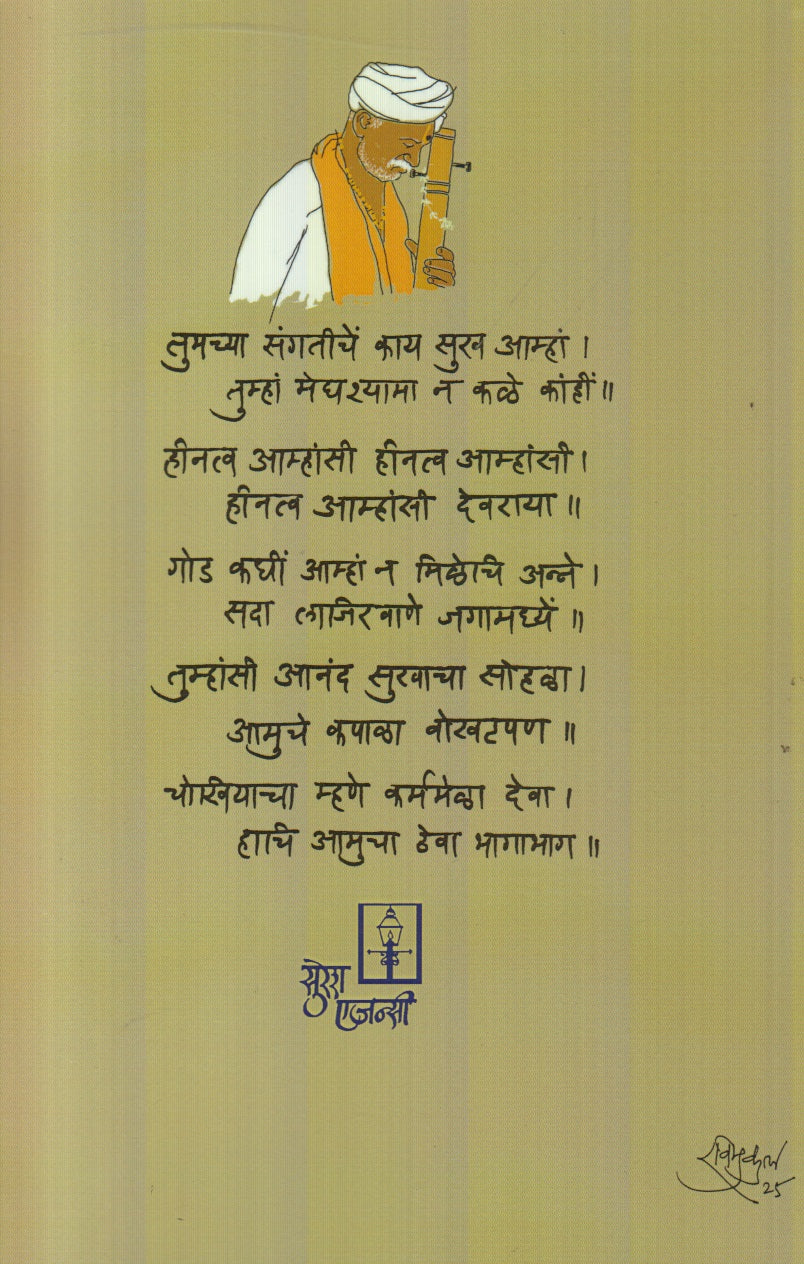 तुमच्या संगतीचें काय सुख आम्हां ।
तुम्हां मेघश्यामा न कळे कांहीं ॥
हीनत्व आम्हांसी हीनत्व आम्हांसी ।
हीनत्व आम्हांसी देवराया ॥
गोड कधीं आम्हां न मिळेचि अन्ने ।
सदा लाजिरवाणे जगामध्यें ॥
तुम्हांसी आनंद सुखाचा सोहळा ।
आमुचे कपाळा वोखटपण ॥
चोखियाचा म्हणे कर्ममेळा देवा ।
हाचि आमुचा ठेवा भागाभाग ॥
सुरेश
एजन्सी
रविमुकुल
25